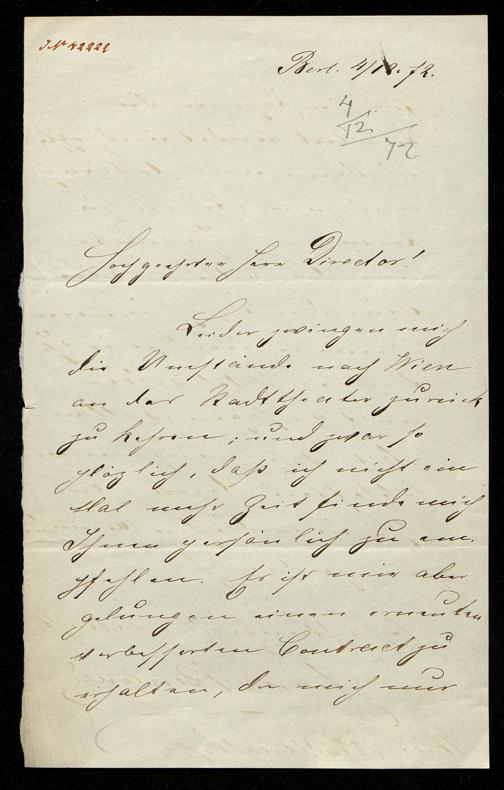 J.N 42222
Berl. 4/12. 72.
4/12 72
Hochgeehrter Herr Director!
Leider zwingen mich
die Umstände nach Wien
an das Stadttheater zurück
zu kehren; und zwar so
plözlich, daß ich nicht ein
Mal mehr Zeit finde mich
Ihnen persönlich zu em-
pfehlen. Es ist mir aber
gelungen einen erneuten
verbesserten Contract zu
erhalten, der mich nur